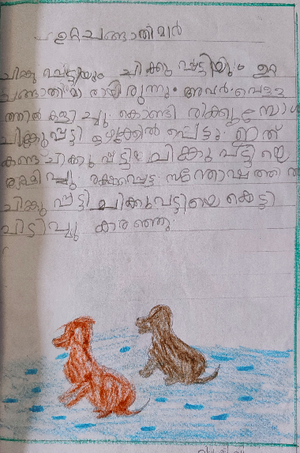 ഉറ്റചങ്ങാതിമാർ
ചിക്കു പട്ടിയും ചിക്കു പട്ടിയും ഉറ്റ
ചങ്ങാതിമാരായിരുന്നു. അവർ വെള്ള
ത്തിൽ കളിച്ചു കൊണ്ടിരിക്കുമ്പോൾ
ചിക്കുപട്ടി ഒഴുക്കിൽ പെട്ടു. ഇത്
കണ്ട ചിക്കു പട്ടി ചിക്കു പട്ടിയെ
രക്ഷിച്ചു. രക്ഷപ്പെട്ട സന്തോഷത്തിൽ
ചിക്കു പട്ടി ചിക്കുപട്ടിയെ കെട്ടി
പിടിച്ചു കരഞ്ഞു